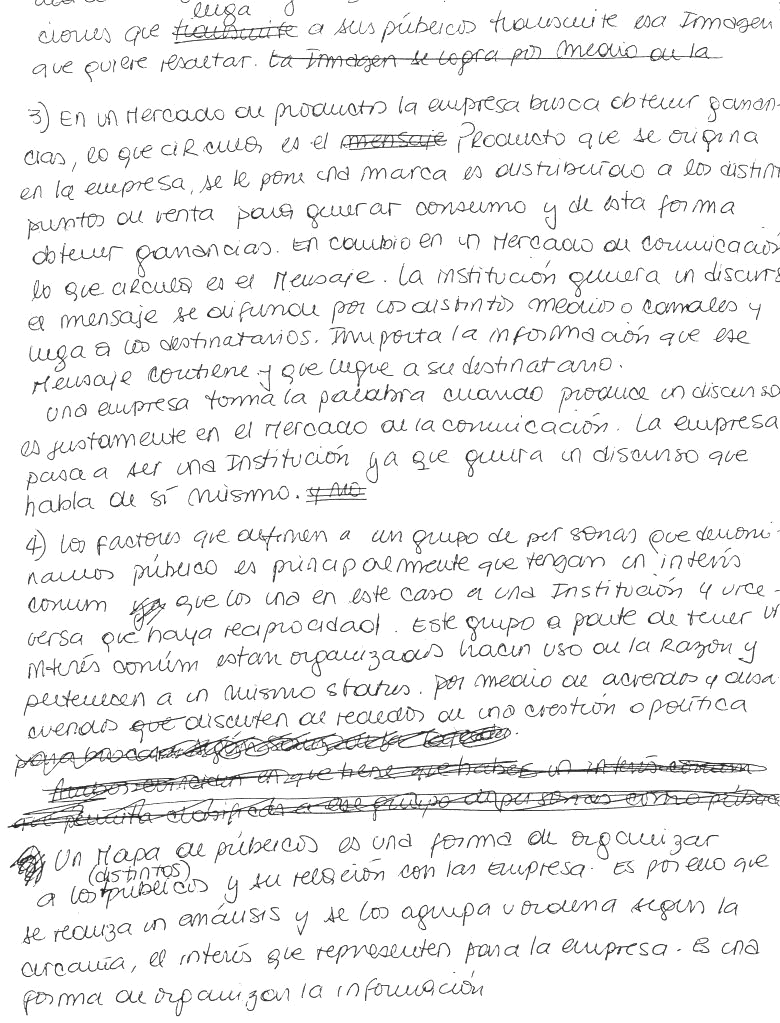 llega y
ciones que transmite a sus públicos transmite esa Immagen
que quiere resaltar. La Immagen se logra por medio de la
3) En un Mercado de productos la empresa busca obtener ganan-
cias, lo que circula es el mensaje Producto que se origina
en la empresa, se le pone una marca es distribuído a los distin
puntos de venta para generar consumo y de esta forma
obtener ganancias. En cambio en un Mercado de comunicación
lo que circula es el Mensaje. La institución genera un discurs
el mensaje se difunde por los distintos medios o camales y
llega a los destinatarios. Importa la información que ese
Mensaje contiene y que llegue a su destinatario.
Una empresa toma la palabra cuando produce un discurso
es justamente en el Mercado de la comunicación. La empresa
pasa a ser una Institución ya que genera un discurso que
habla de sí mismo. y no
4) Los factores que definen a un grupo de personas que denomi-
namos público es principalmente que tengan un interés
comum que los una en este caso a una Institución y vice-
versa que haya reciprocidad. Este grupo a parte de tener un
interés comúm estan organizados hacen uso de la Razón y
pertenecen a un mismo status. Por medio de acuerdos y desa
cuerdos que discuten al rededor de una cuestión o política
para buscar
ambos coincidan en que tiene que haber un interés comum
que permita clasificar a ese grupo de personas como público
Un Mapa de públicos es una forma de organizar
(distintos)
a los públicos y su relación con las Empresa. Es por ello que
se realiza un análisis y se los agrupa u ordena según la
cercanía, el interés que representen para la empresa. Es una
forma de organizar la información